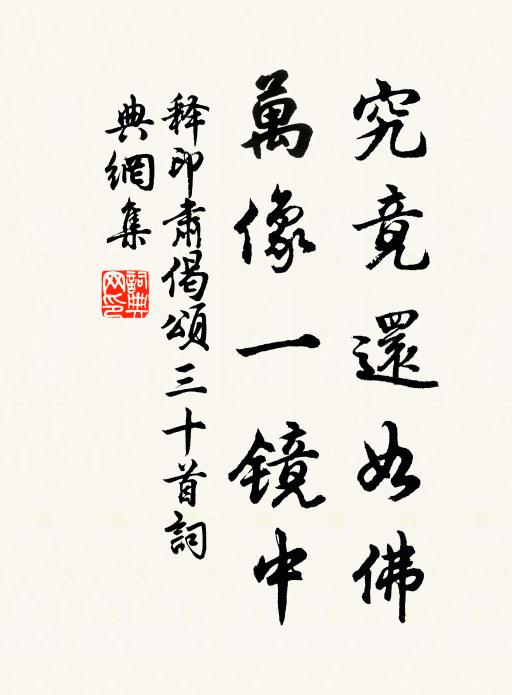 究竟還如佛
萬像一镜中
释印肅偈頌三十首詞
典網集
詞典
网印